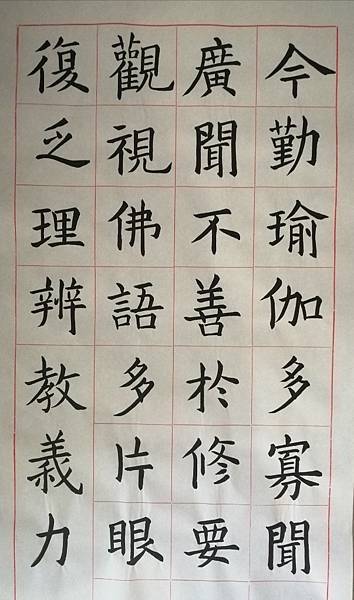 今勤瑜伽多寡聞
廣聞不善於修要
觀視佛語多片眼
復乏理辨教義力